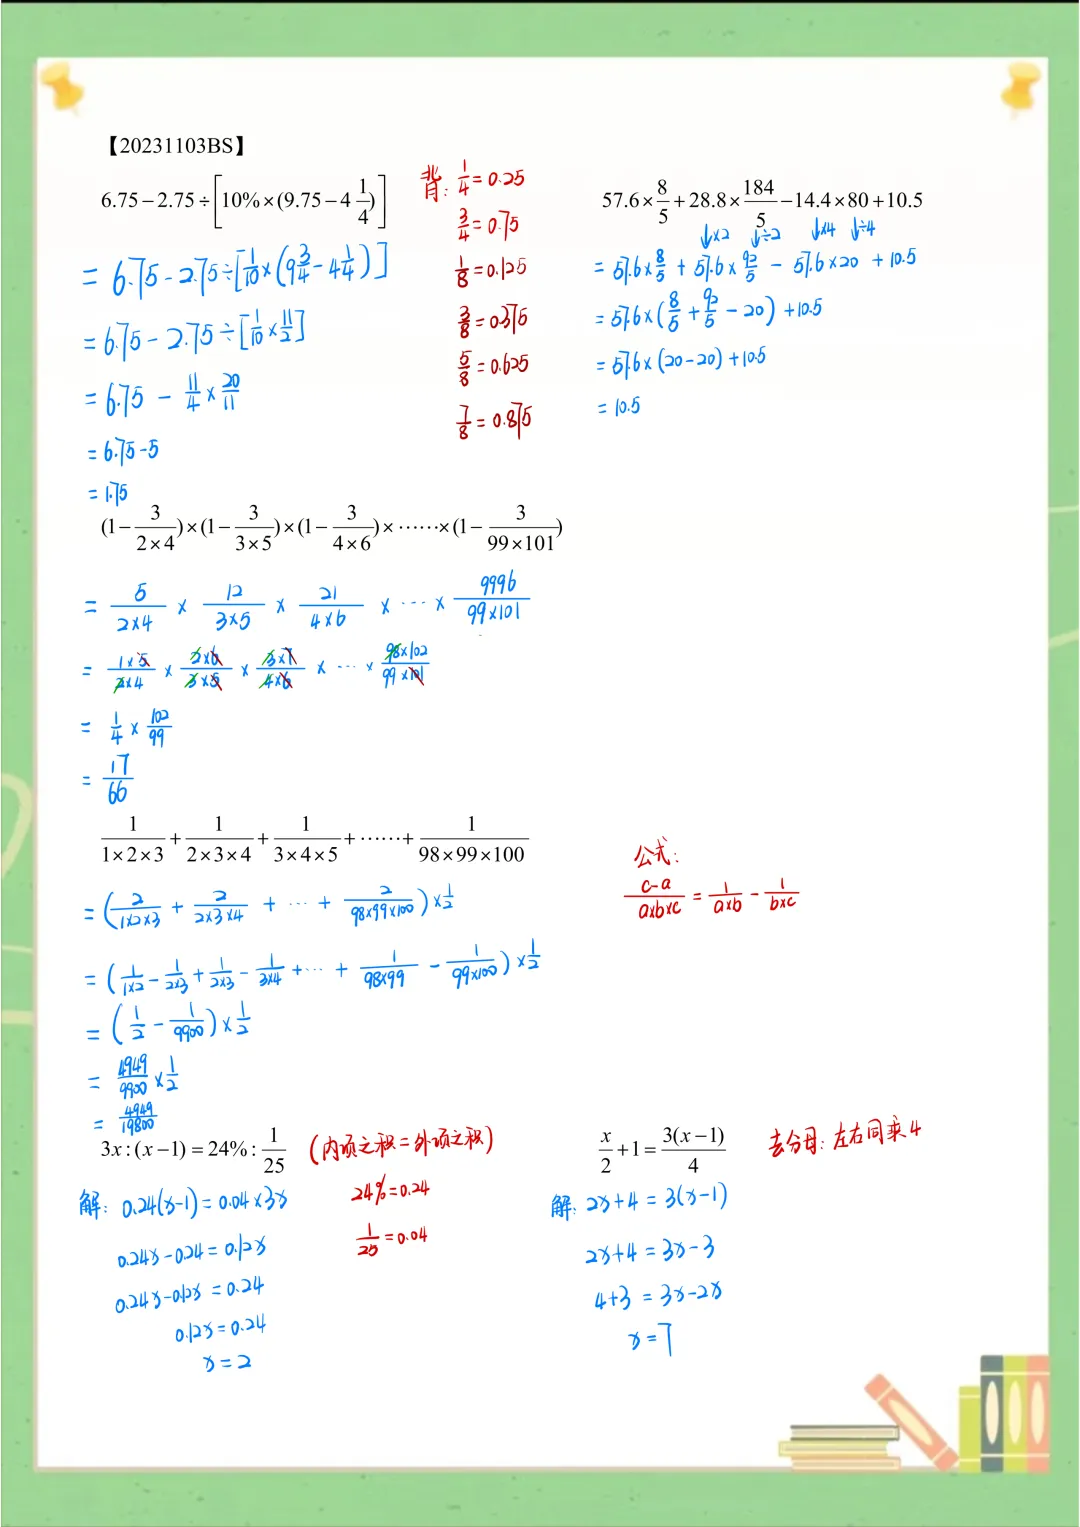 【20231103BS】
6.75-2.75÷[10%×(9.75-4 1/4)]
=6.75-2.75÷[1/10×(9 3/4-4 1/4)]
=6.75-2.75÷[1/10×11/2]
=6.75-11/4×20/11
=6.75-5
=1.75
背: 1/4=0.25
3/4=0.75
1/8=0.125
3/8=0.375
5/8=0.625
7/8=0.875
57.6×8/5+28.8×184/5-14.4×80+10.5
↓×2 ↓÷2 ↓×4 ↓÷4
=57.6×8/5+57.6×92/5-57.6×20+10.5
=57.6×(8/5+92/5-20)+10.5
=57.6×(20-20)+10.5
=10.5
(1-3/(2×4))×(1-3/(3×5))×(1-3/(4×6))×……×(1-3/(99×101))
=5/(2×4)×12/(3×5)×21/(4×6)×…×9996/(99×101)
=(1×5)/(2×4)×(2×6)/(3×5)×(3×7)/(4×6)×…×(98×102)/(99×101)
=1/4×102/99
=17/66
1/(1×2×3)+1/(2×3×4)+1/(3×4×5)+……+1/(98×99×100)
=(2/(1×2×3)+2/(2×3×4)+…+2/(98×99×100))×1/2
=(1/(1×2)-1/(2×3)+1/(2×3)-1/(3×4)+…+1/(98×99)-1/(99×100))×1/2
=(1/2-1/9900)×1/2
=4949/9900×1/2
=4949/19800
公式:
(c-a)/(a×b×c)=1/(a×b)-1/(b×c)
3x:(x-1)=24%:1/25
(内项之积=外项之积)
解: 0.24(x-1)=0.04×3x
0.24x-0.24=0.12x
0.24x-0.12x=0.24
0.12x=0.24
x=2
24%=0.24
1/25=0.04
x/2+1=3(x-1)/4
去分母: 左右同乘4
解: 2x+4=3(x-1)
2x+4=3x-3
4+3=3x-2x
x=7